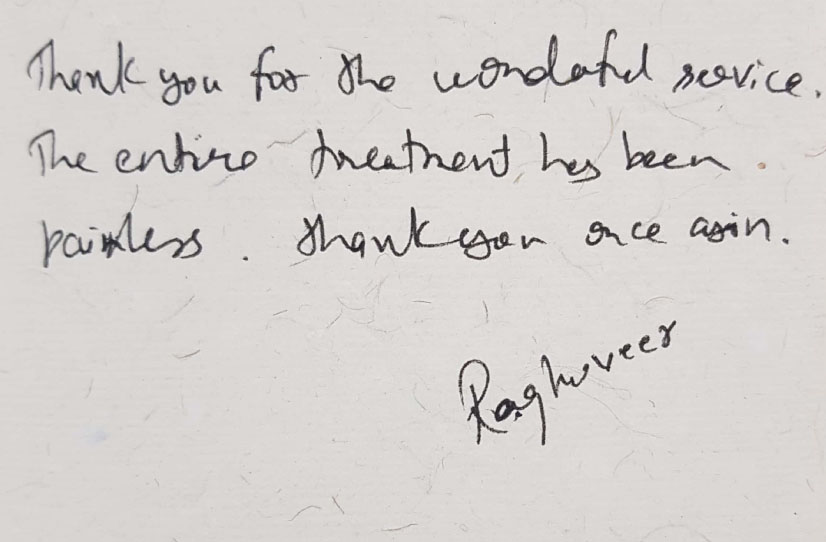 Thank you for the wondeful service.
The entire treatment has been.
painless. Thank you once again.
Raghuveer